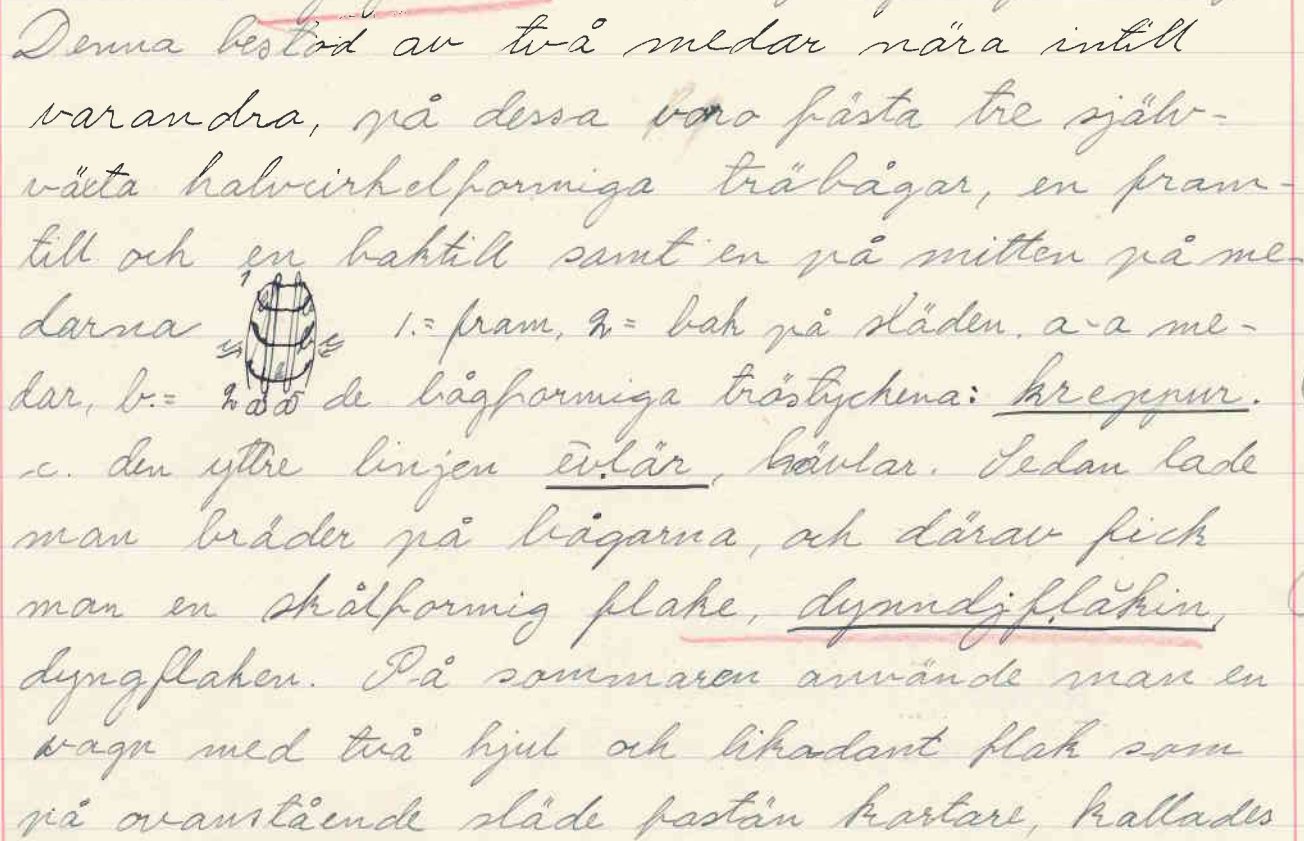 Denna bestod av två medar nära intill
varandra, på dessa voro fästa tre själv-
växta halvcirkelformiga träbågar, en fram-
till och en baktill samt en på mitten på me-
darna 1 1.= fram, 2= bak på släden. a-a me-
dar, b.= 2 a a de bågformiga trästyckena: kreppur.
c. den yttre linjen ēvlär, hävlar. Sedan lade
man bräder på bågarna, och därav fick
man en skålformig flake, dynndjflăkin,
dyngflaken. På sommaren använde man en
vagn med två hjul och likadant flak som
på ovanstående släde fastän kortare, kallades